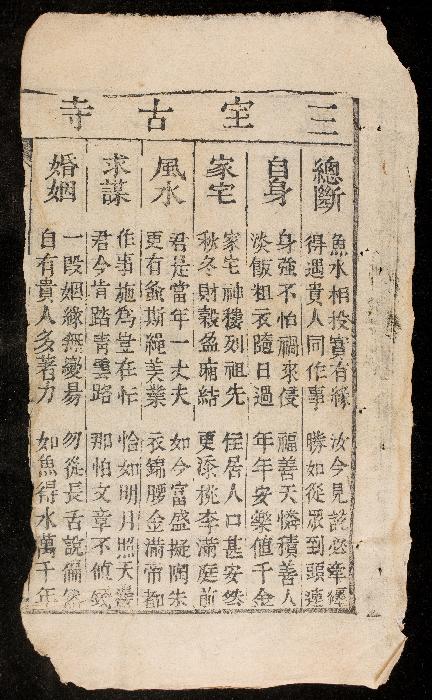 三宝古寺
總斷
魚水相投實有緣 汝今見説必牽纏
得遇貴人同作事 勝如從眾到頭連
自身
身強不怕禍來侵 福善天憐積善人
淡飯粗衣隨日過 年年安樂值千金
家宅
家宅神樓列祖先 住居人口甚安然
秋冬財穀盈廂結 更添桃李滿庭前
風水
君是當年一丈夫 如今富盛擬陶朱
更有螽斯繩美業 衣錦腰金滿帝都
求謀
作事施為豈在忙 恰如明月照天
君今肯踏靑雲路 那怕文章不值錢
婚姻
一段姻緣無憂易 勿從長舌說偏然
自有貴人多著力 如魚得水萬千年